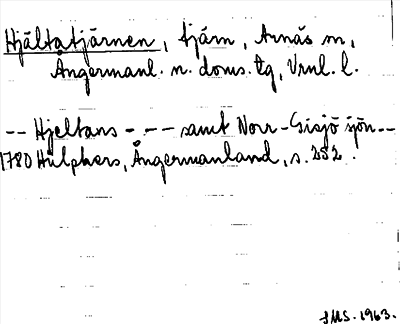 Hjältatjärnen, tjärn, Arnäs sn,
Ångermanl. n. doms. tg, Vnl. l.
-- Hjeltans - - - samt Norr-Gisjö sjön --
1780 Hülphers, Ångermanland, s. 252.
SMS. 1963.